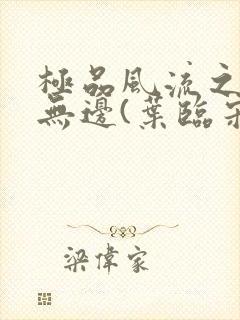 極品風流之
無邊(葉臨
梁偉家